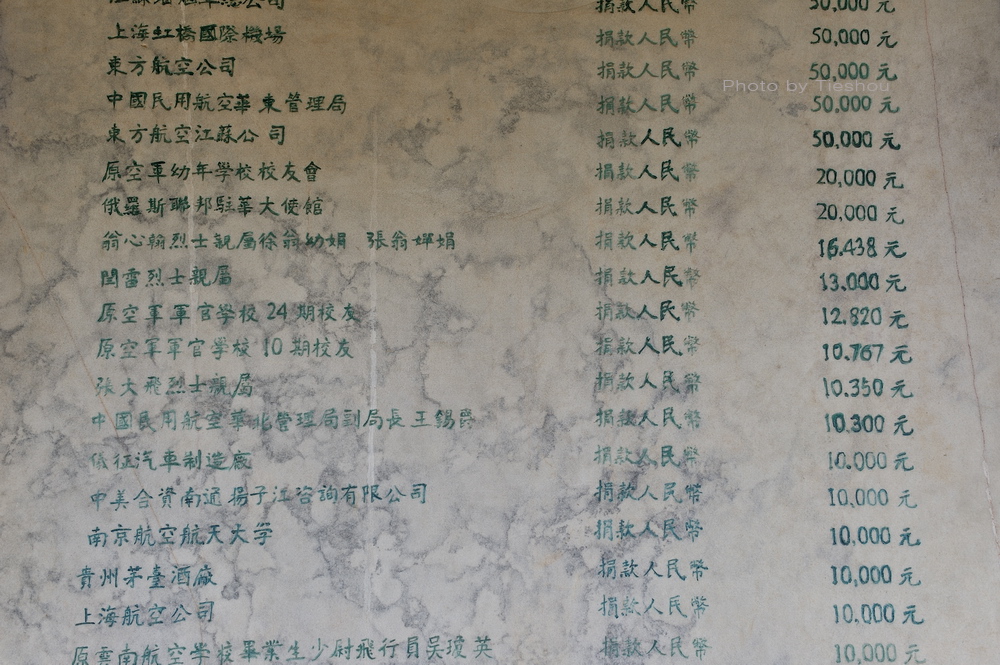 公司 捐款人民幣 50,000 元
上海虹橋國際機場 捐款人民幣 50,000 元
東方航空公司 捐款人民幣 50,000 元
Photo by Tieshou
中國民用航空華東管理局 捐款人民幣 50,000 元
東方航空江蘇公司 捐款人民幣 50,000 元
原空軍幼年學校校友會 捐款人民幣 20,000 元
俄羅斯聯邦駐華大使館 捐款人民幣 20,000 元
翁心翰烈士親屬徐翁幼娟 張翁嬋娟 捐款人民幣 16.438 元
閻雷烈士親屬 捐款人民幣 13.000 元
原空軍軍官學校 24 期校友 捐款人民幣 12.820 元
原空軍軍官學校 10 期校友 捐款人民幣 10.767 元
張大飛烈士親屬 捐款人民幣 10.350 元
中國民用航空華北管理局副局長王錫爵 捐款人民幣 10.300 元
儀征汽車制造廠 捐款人民幣 10.000 元
中美合資南通揚子江咨詢有限公司 捐款人民幣 10,000 元
南京航空航天大學 捐款人民幣 10,000 元
貴州茅臺酒廠 捐款人民幣 10,000 元
上海航空公司 捐款人民幣 10,000 元
原雲南航空學校畢業生少尉飛行員吳瓊英 捐款人民幣 10,000 元